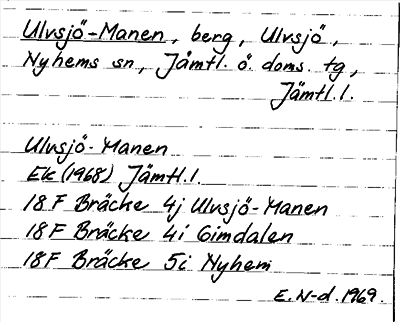 Ulvsjö-Manen, berg, Ulvsjö,
Nyhems sn, Jämtl. ö. doms. tg,
Jämtl.l.
Ulvsjö-Manen
Ek (1968) Jämtl.l.
18F Bräcke 4j Ulvsjö-Manen
18F Bräcke 4i Gimdalen
18F Bräcke 5i Nyhem
E.N-d. 1969.